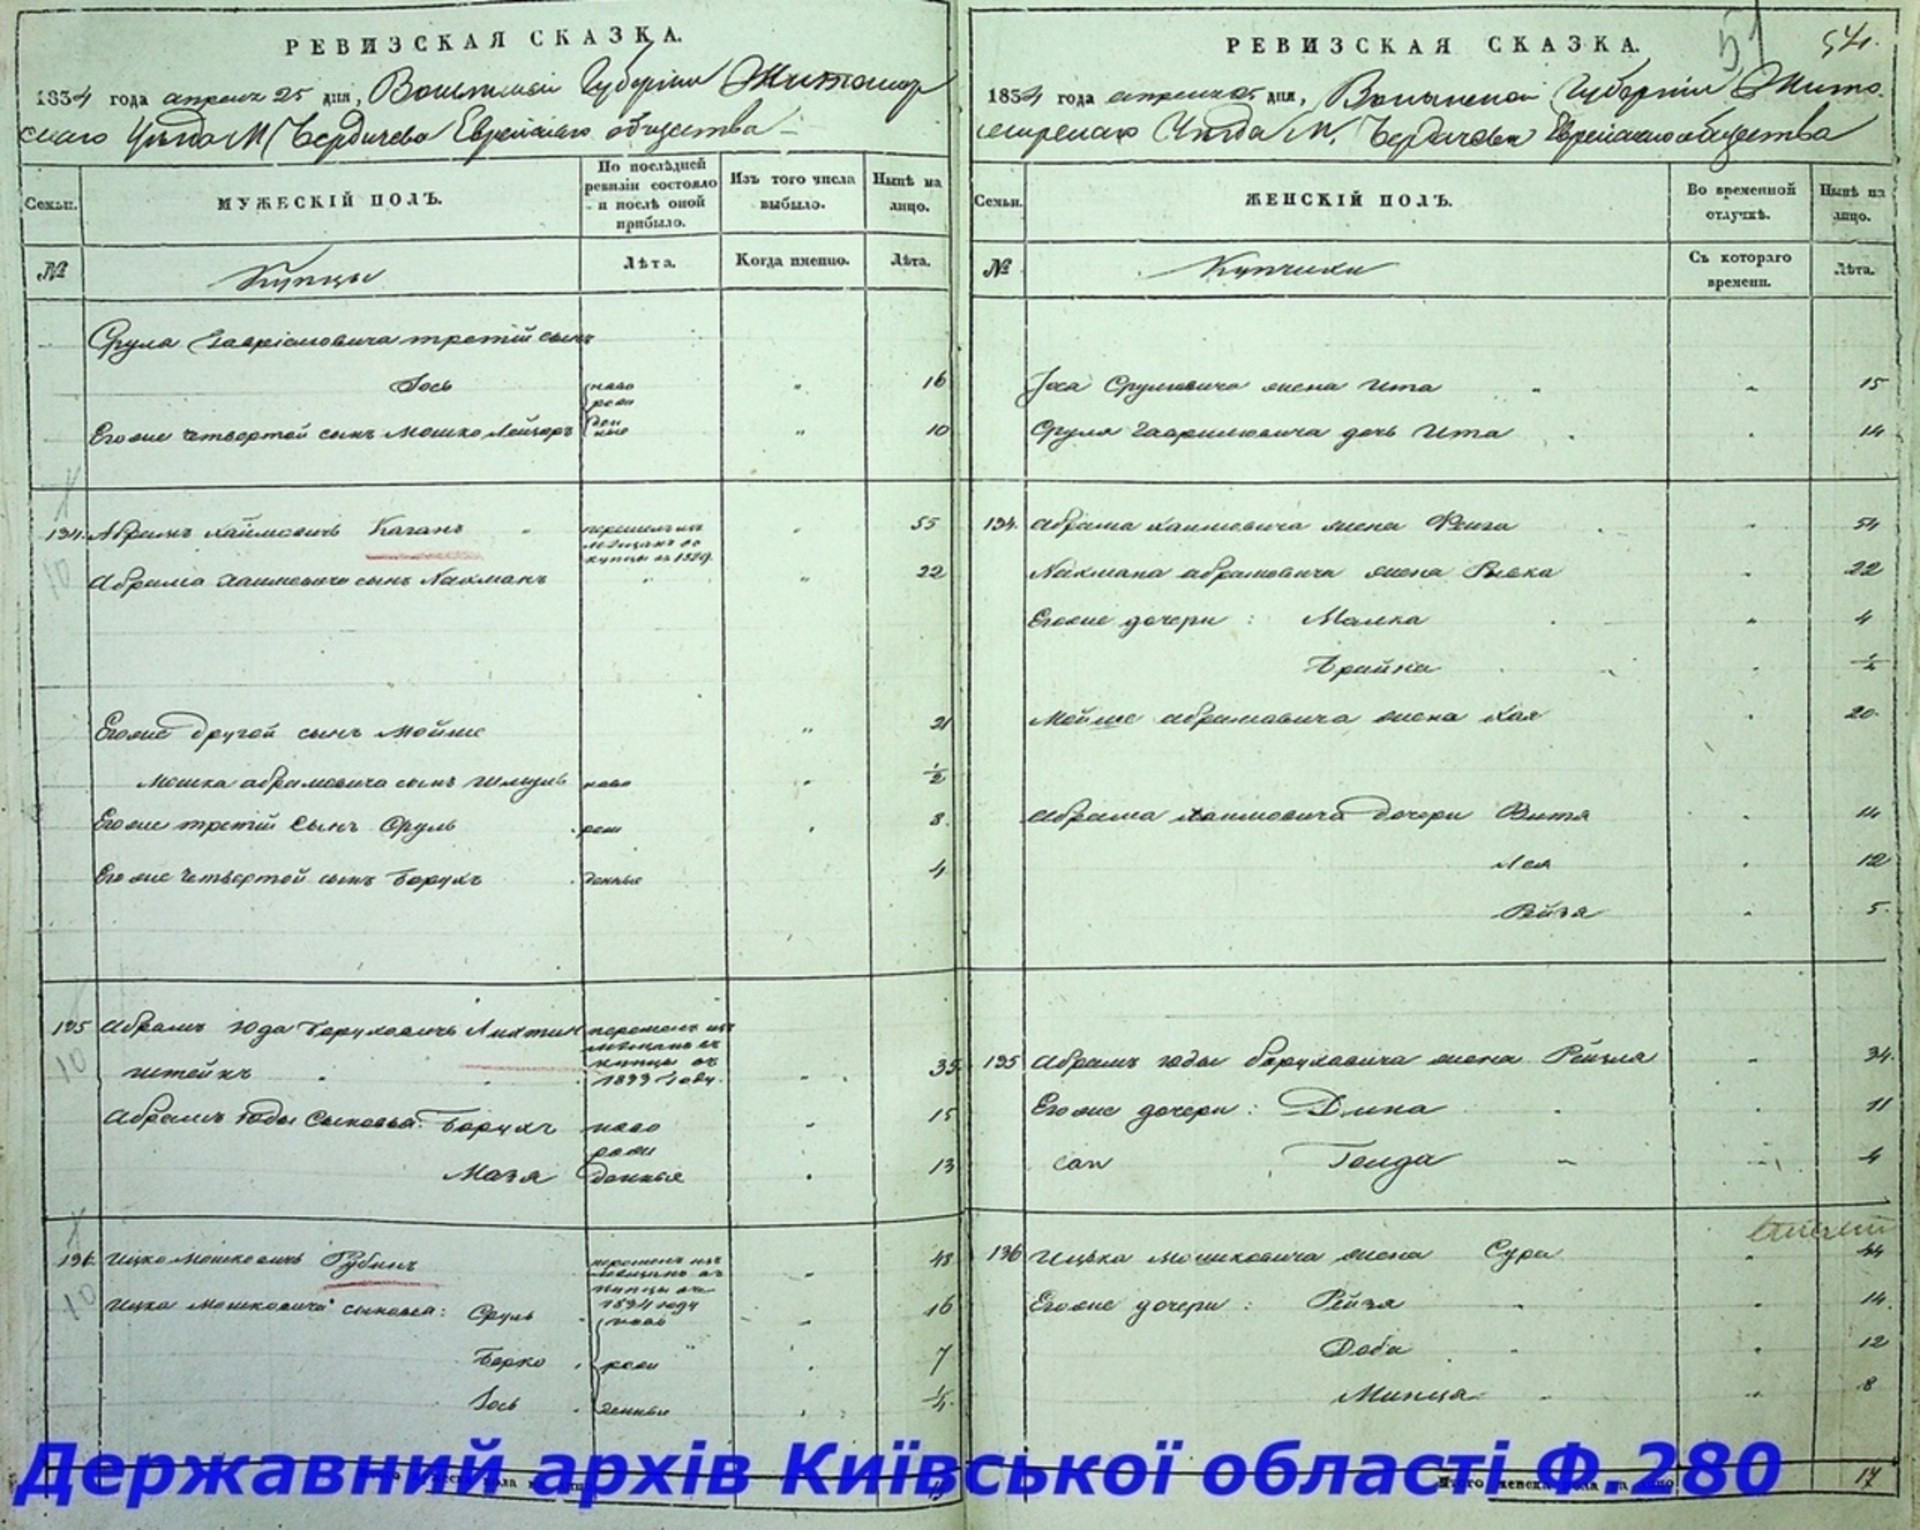 РЕВИЗСКАЯ СКАЗКА.
1834 года апреля 25 дня, Волынской Губернии Житомир
скаго Уезда М. Бердичева Еврейскаго общества
Семьи.
МУЖЕСКІЙ ПОЛЪ.
По послѣдней ревизіи состояло и послѣ оной прибыло.
Изъ того числа выбыло.
Нынѣ на лицо.
№
Купцы
Лѣта.
Когда именно.
Лѣта.
Срула Гавріловича третій сынъ
Іось ново 16
рож
Его же четвертой сынъ Мошко Лейзоръ ден ные 10
134. Абрамъ Хаимовичъ Каганъ перешелъ изъ 55
мещанъ въ
купцы въ 1829.
Абрама Хаимовича сынъ Нахманъ 22
Его же другой сынъ Мойше 21
Мошка Абрамовича сынъ Шмуль ново ½
Его же третій сынъ Сруль рож 8
Его же четвертой сынъ Борухъ денные 4
135 Абрамъ Юда Боруховичъ Лихтин перешелъ изъ
мещанъ въ
штейнъ купцы въ 35
1833 году.
Абрамъ Юды сыновья: Борухъ ново 15
рож
Мазя денные 13
136. Ицко Мошковичъ Рубинъ перешелъ изъ 48
мещанъ въ
купцы въ
1834 году
Ицка Мошковича сыновья: Сруль ново 16
Берко рож 7
Іось денные ¼
РЕВИЗСКАЯ СКАЗКА.
51 54.
1834 года апреля 25 дня, Волынской Губернии Жито
мирскаго Уезда М. Бердичева Еврейскаго общества
Семьи.
ЖЕНСКІЙ ПОЛЪ.
Во временной отлучкѣ.
Нынѣ на лицо.
№
Купчихи
Съ котораго времени.
Лѣта.
Іося Срулевича жена Ита 15
Сруля Гавриловича дочь Ита 14
134. Абрама Хаимовича жена Фейга 54
Нахмана Абрамовича жена Ривка 22
Его же дочери: Малка 4
Брайна ½
Мойше Абрамовича жена Хая 20
Абрама Хаимовича дочери Витя 14
Лея 12
Рейзя 5
135 Абрамъ Юды Боруховича жена Рейзля 34.
Его же дочери: Дина 11
Голда 4
136 Ицька Мошковича жена Сура 44
Его же дочери: Рейзя 14.
Доба 12
Минца 8
Итого женска пола на лицо 17
Державний архів Київської області Ф.280